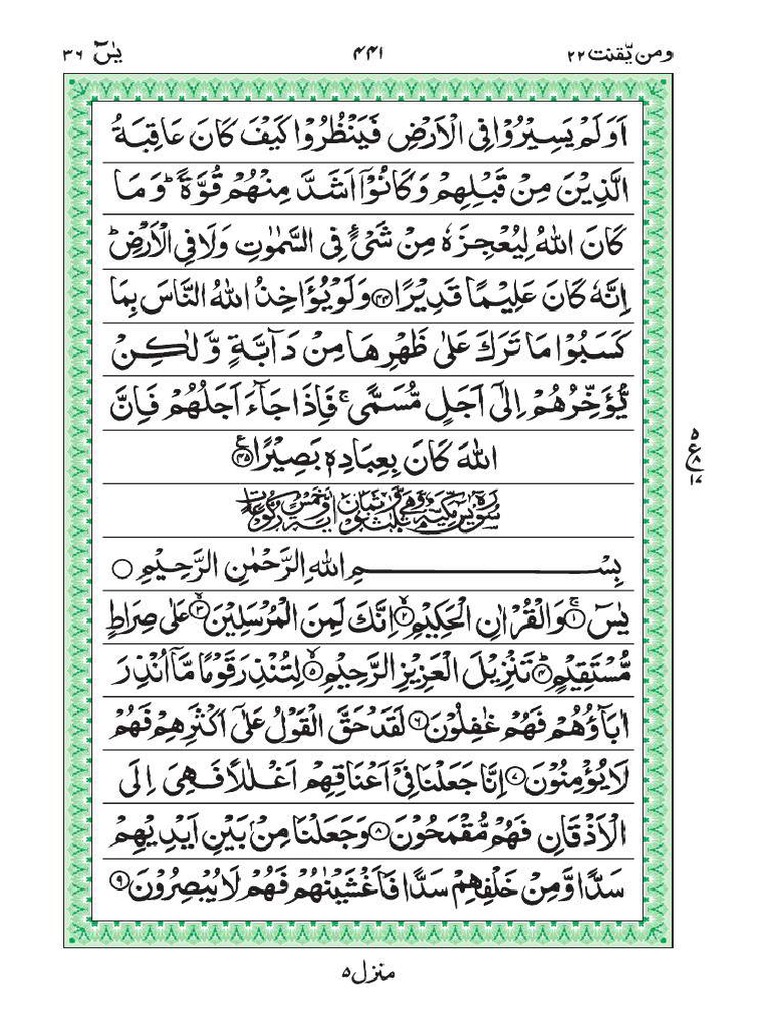 ومن یّقنت ۲۲ ۴۴۱ یٰسٓ ۳۶
اَوَلَمْ یَسِیْرُوْا فِی الْاَرْضِ فَیَنْظُرُوْا كَیْفَ كَانَ عَاقِبَةُ
الَّذِیْنَ مِنْ قَبْلِهِمْ وَكَانُوْۤا اَشَدَّ مِنْهُمْ قُوَّةً ؕ وَمَا
كَانَ اللّٰهُ لِیُعْجِزَهٗ مِنْ شَیْءٍ فِی السَّمٰوٰتِ وَلَا فِی الْاَرْضِ ؕ
اِنَّهٗ كَانَ عَلِیْمًا قَدِیْرًا ۴۴ وَلَوْ یُؤَاخِذُ اللّٰهُ النَّاسَ بِمَا
كَسَبُوْا مَا تَرَكَ عَلٰی ظَهْرِهَا مِنْ دَآبَّةٍ وَّلٰكِنْ
یُّؤَخِّرُهُمْ اِلٰۤی اَجَلٍ مُّسَمًّی ۚ فَاِذَا جَآءَ اَجَلُهُمْ فَاِنَّ
اللّٰهَ كَانَ بِعِبَادِهٖ بَصِیْرًا ۴۵
۵
ع
۸
۱۷
سُوْرَةُ یٰسٓ مَكِّیَّةٌ وَّهِیَ ثَلٰثٌ وَّثَمَانُوْنَ اٰیَةً وَّخَمْسُ رُكُوْعَاتٍ
بِسْمِ اللّٰهِ الرَّحْمٰنِ الرَّحِیْمِ ○
یٰسٓ ۚ ۱ وَالْقُرْاٰنِ الْحَكِیْمِ ۙ ۲ اِنَّكَ لَمِنَ الْمُرْسَلِیْنَ ۙ ۳ عَلٰی صِرَاطٍ
مُّسْتَقِیْمٍ ؕ ۴ تَنْزِیْلَ الْعَزِیْزِ الرَّحِیْمِ ۙ ۵ لِتُنْذِرَ قَوْمًا مَّاۤ اُنْذِرَ
اٰبَآؤُهُمْ فَهُمْ غٰفِلُوْنَ ۶ لَقَدْ حَقَّ الْقَوْلُ عَلٰۤی اَكْثَرِهِمْ فَهُمْ
لَا یُؤْمِنُوْنَ ۷ اِنَّا جَعَلْنَا فِیْۤ اَعْنَاقِهِمْ اَغْلٰلًا فَهِیَ اِلَی
الْاَذْقَانِ فَهُمْ مُّقْمَحُوْنَ ۸ وَجَعَلْنَا مِنْۢ بَیْنِ اَیْدِیْهِمْ
سَدًّا وَّمِنْ خَلْفِهِمْ سَدًّا فَاَغْشَیْنٰهُمْ فَهُمْ لَا یُبْصِرُوْنَ ۹
منزل ۵